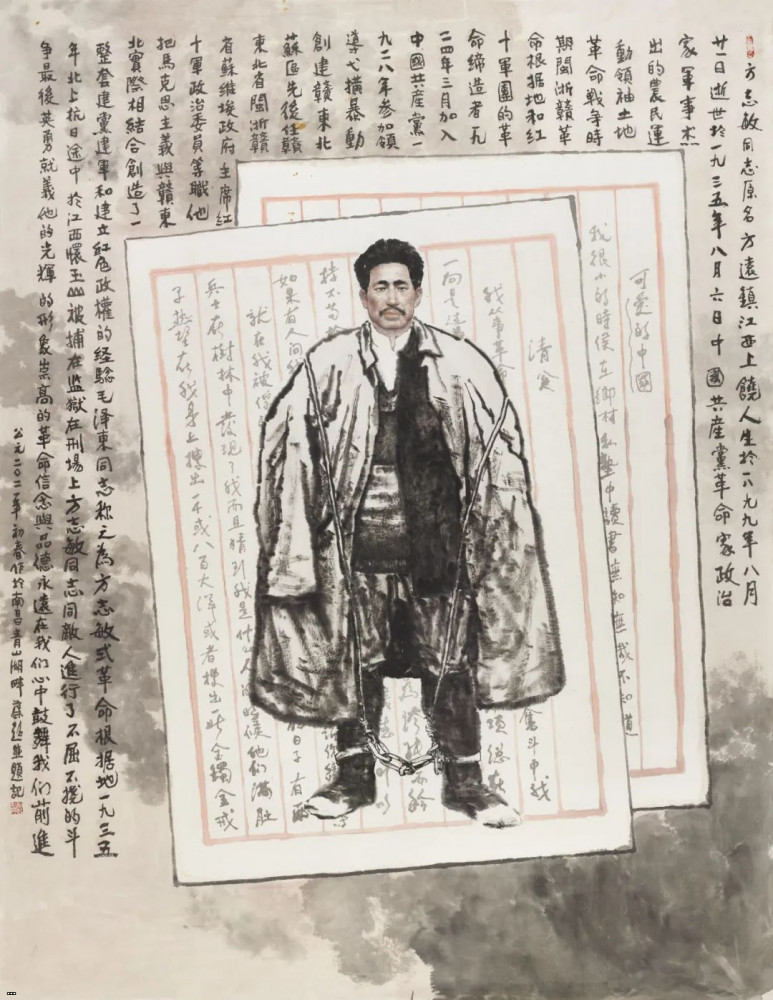 方志敏同志原名方遠鎮江西上饒人生於一八九九年八月
廿一日逝世於一九三五年八月六日中國共産黨革命家政治
家軍事杰
出的農民運
動領袖土地
革命戰爭時
期閩浙贛革
命根据地和紅
十軍團的革
命締造者一九
二四年三月加入
中國共産黨一
九二八年参加領
導弋横暴動
創建贛東北
蘇區先後任贛
東北省閩浙贛
省蘇維埃政府主席紅
十軍政治委員等職他
把馬克思主義與贛東
北實際相結合創造了一
整套建黨建軍和建立紅色政權的經驗毛泽東同志称之為方志敏式革命根据地一九三五
年北上抗日途中於江西懷玉山被捕在監獄在刑場上方志敏同志同敵人進行了不屈不撓的斗
争最後英勇就義他的光輝的形象崇高的革命信念與品德永遠在我们心中鼓舞我们前進
公元二〇二一年初春作於南昌青山湖畔蔡超並題記
可愛的中國
我很小的時候在鄉村私塾中讀書無知無識不知道
清貧
我从事革 奮斗中我
一向是过
持不苟
如果有人问我
就在我被俘
兵士在樹林中發現了我而且猜到我是什么人的時候他们滿肚
子热望在我身上搜出一千或八百大洋或者搜出一些金鐲金戒